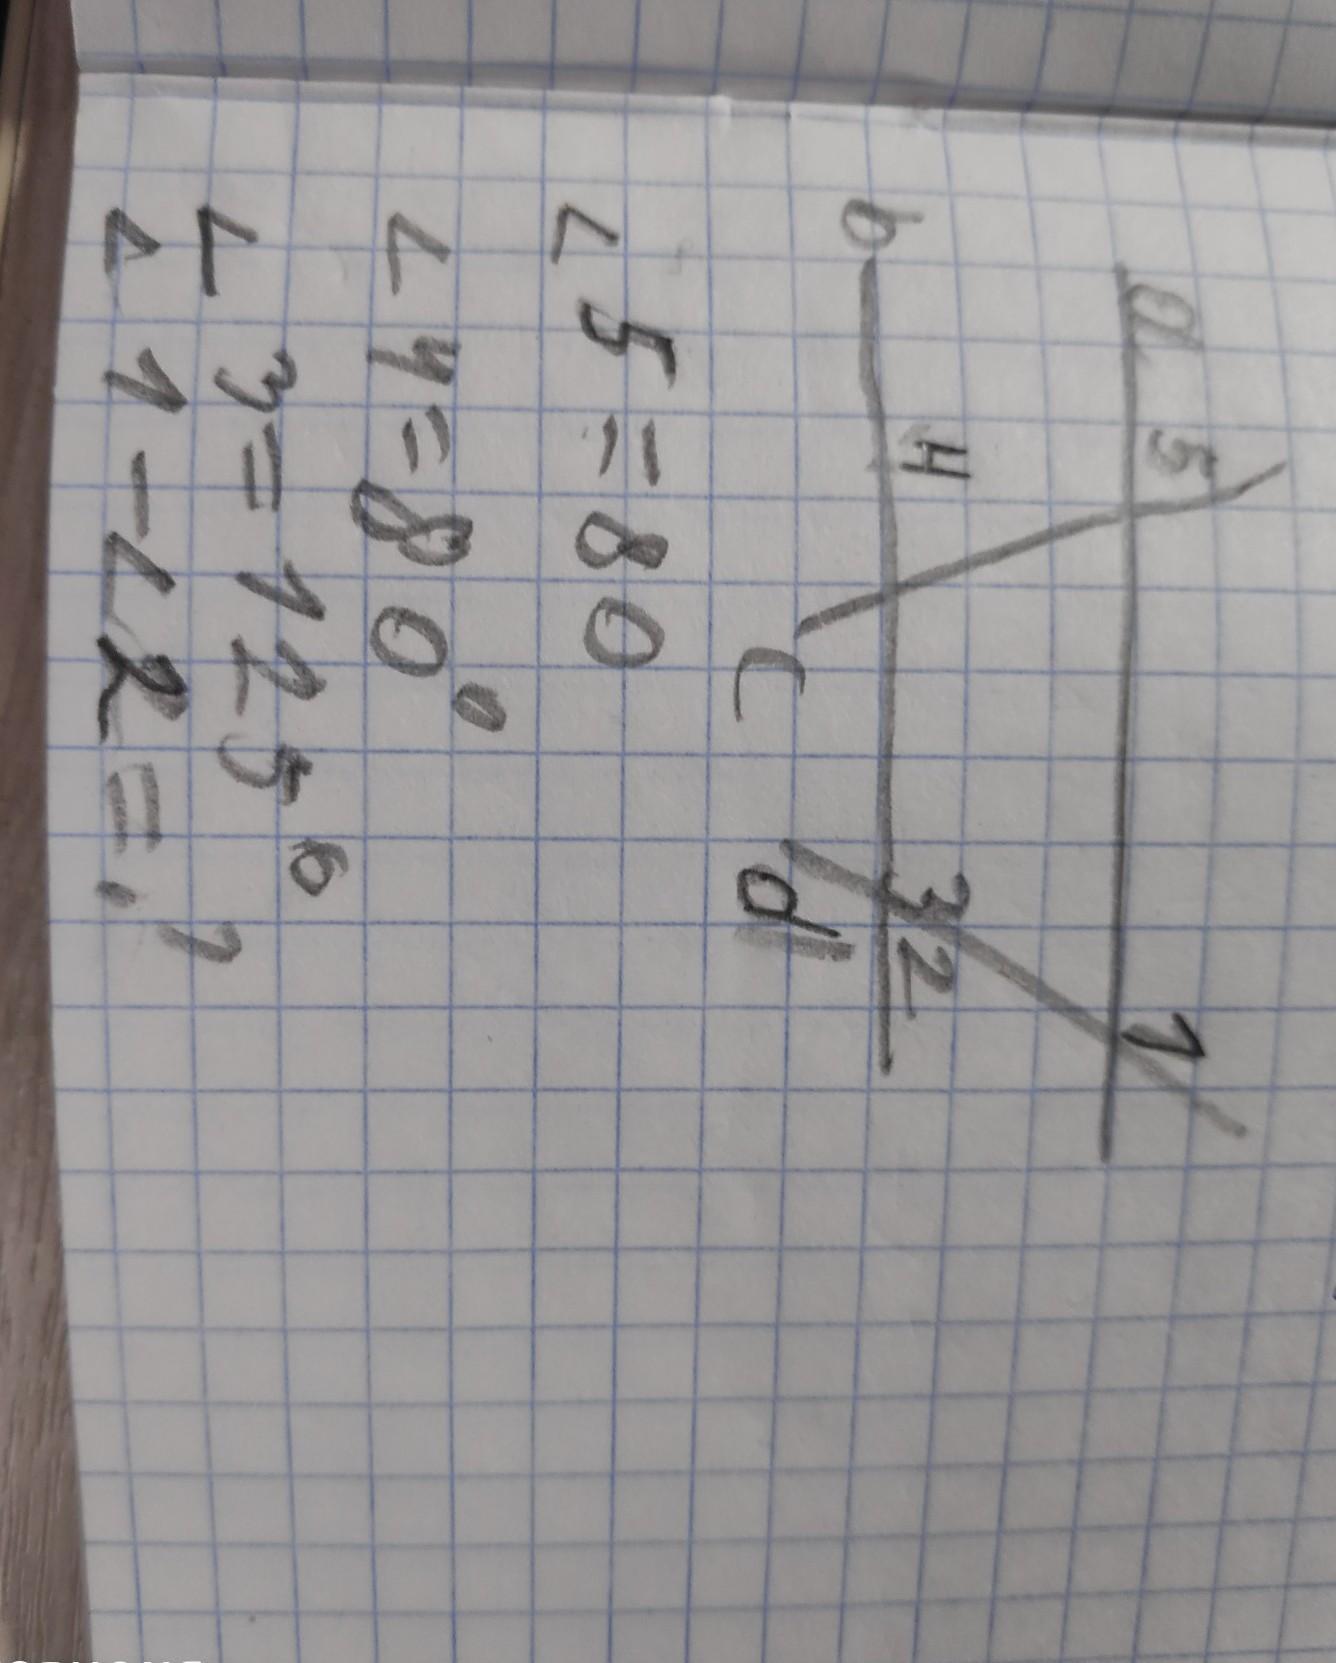 a 5 1
b 4 3 2
c d
∠5=80
∠4=80°
∠3=125°
∠1-∠2=?